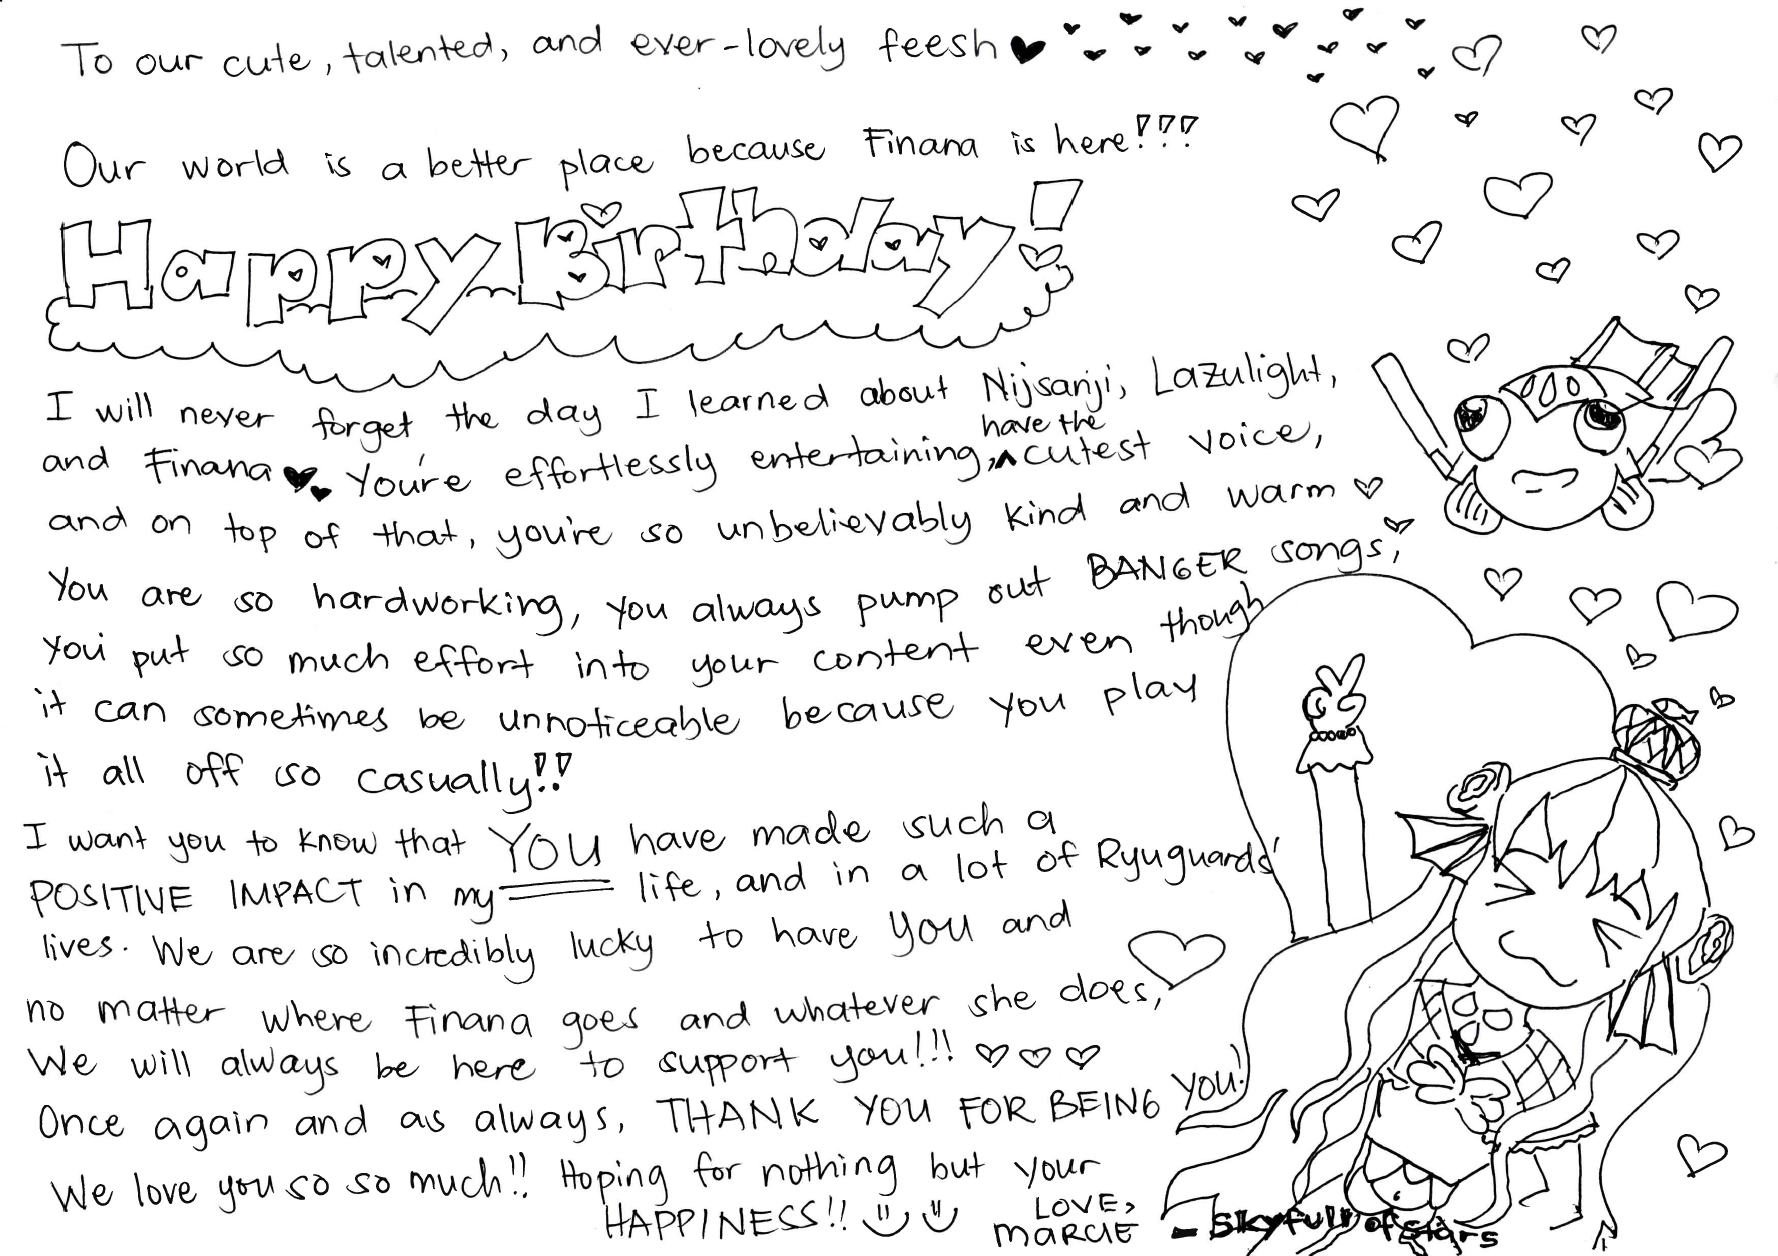 To our cute, talented, and ever-lovely feesh ♥
Our world is a better place because Finana is here!!!
Happy Birthday!
I will never forget the day I learned about Nijisanji, Lazulight,
and Finana ♥♥ You're effortlessly entertaining, have the cutest voice,
and on top of that, you're so unbelievably kind and warm ♡
You are so hardworking, you always pump out BANGER songs,
you put so much effort into your content even though
it can sometimes be unnoticeable because you play
it all off so casually!!
I want you to know that YOU have made such a
POSITIVE IMPACT in my life, and in a lot of Ryuguards'
lives. We are so incredibly lucky to have you and
no matter where Finana goes and whatever she does,
We will always be here to support you!!! ♡♡♡
Once again and as always, THANK YOU FOR BEING YOU!
We love you so so much!! Hoping for nothing but your
HAPPINESS!! :) :)
LOVE,
MARCIE - Skyfull of stars